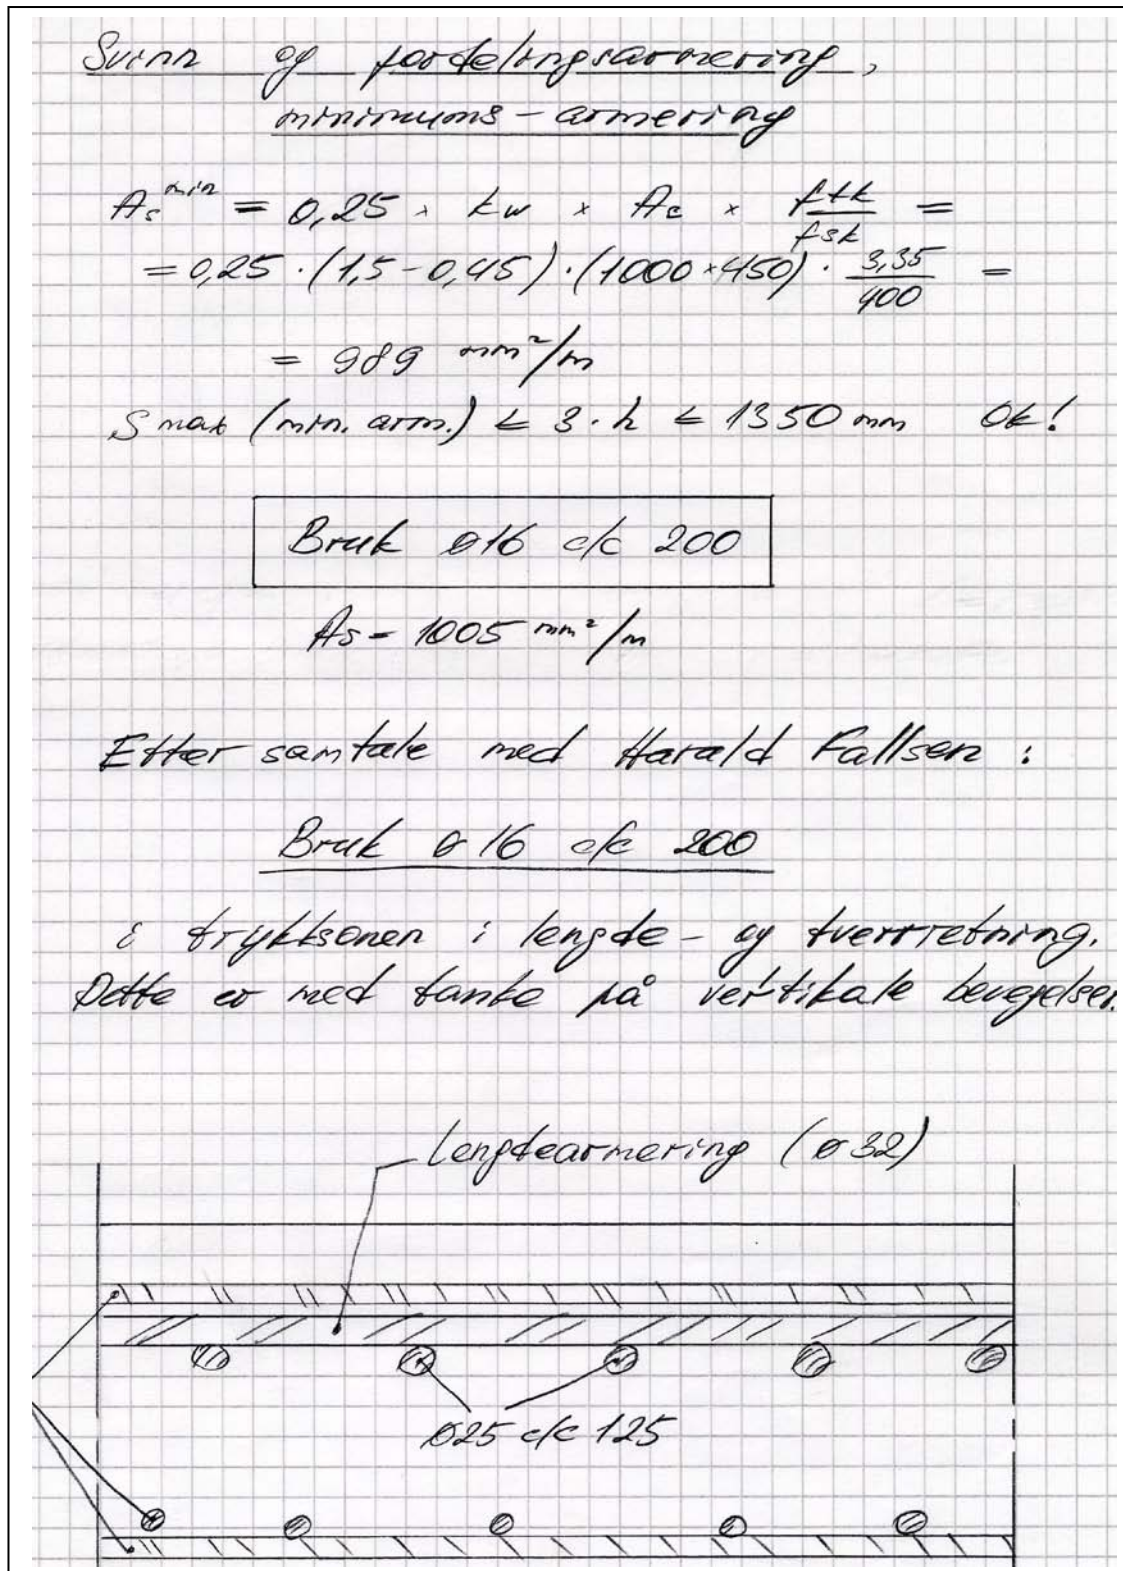 Svinn og fordelingsarmering,
minimums-armering
As min = 0,25 × kw × Ac × ftk/fsk =
= 0,25 · (1,5 - 0,45) · (1000 × 450) · 3,35/400 =
= 989 mm²/m
Smax (min. arm.) ≤ 3·h ≤ 1350 mm Ok!
Bruk ø16 c/c 200
As = 1005 mm²/m
Etter samtale med Harald Fallsen :
Bruk ø16 c/c 200
i trykksonen i lengde- og tverrretning.
Dette er med tanke på vertikale bevegelser.
Lengdearmering (ø32)
Ø25 c/c 125